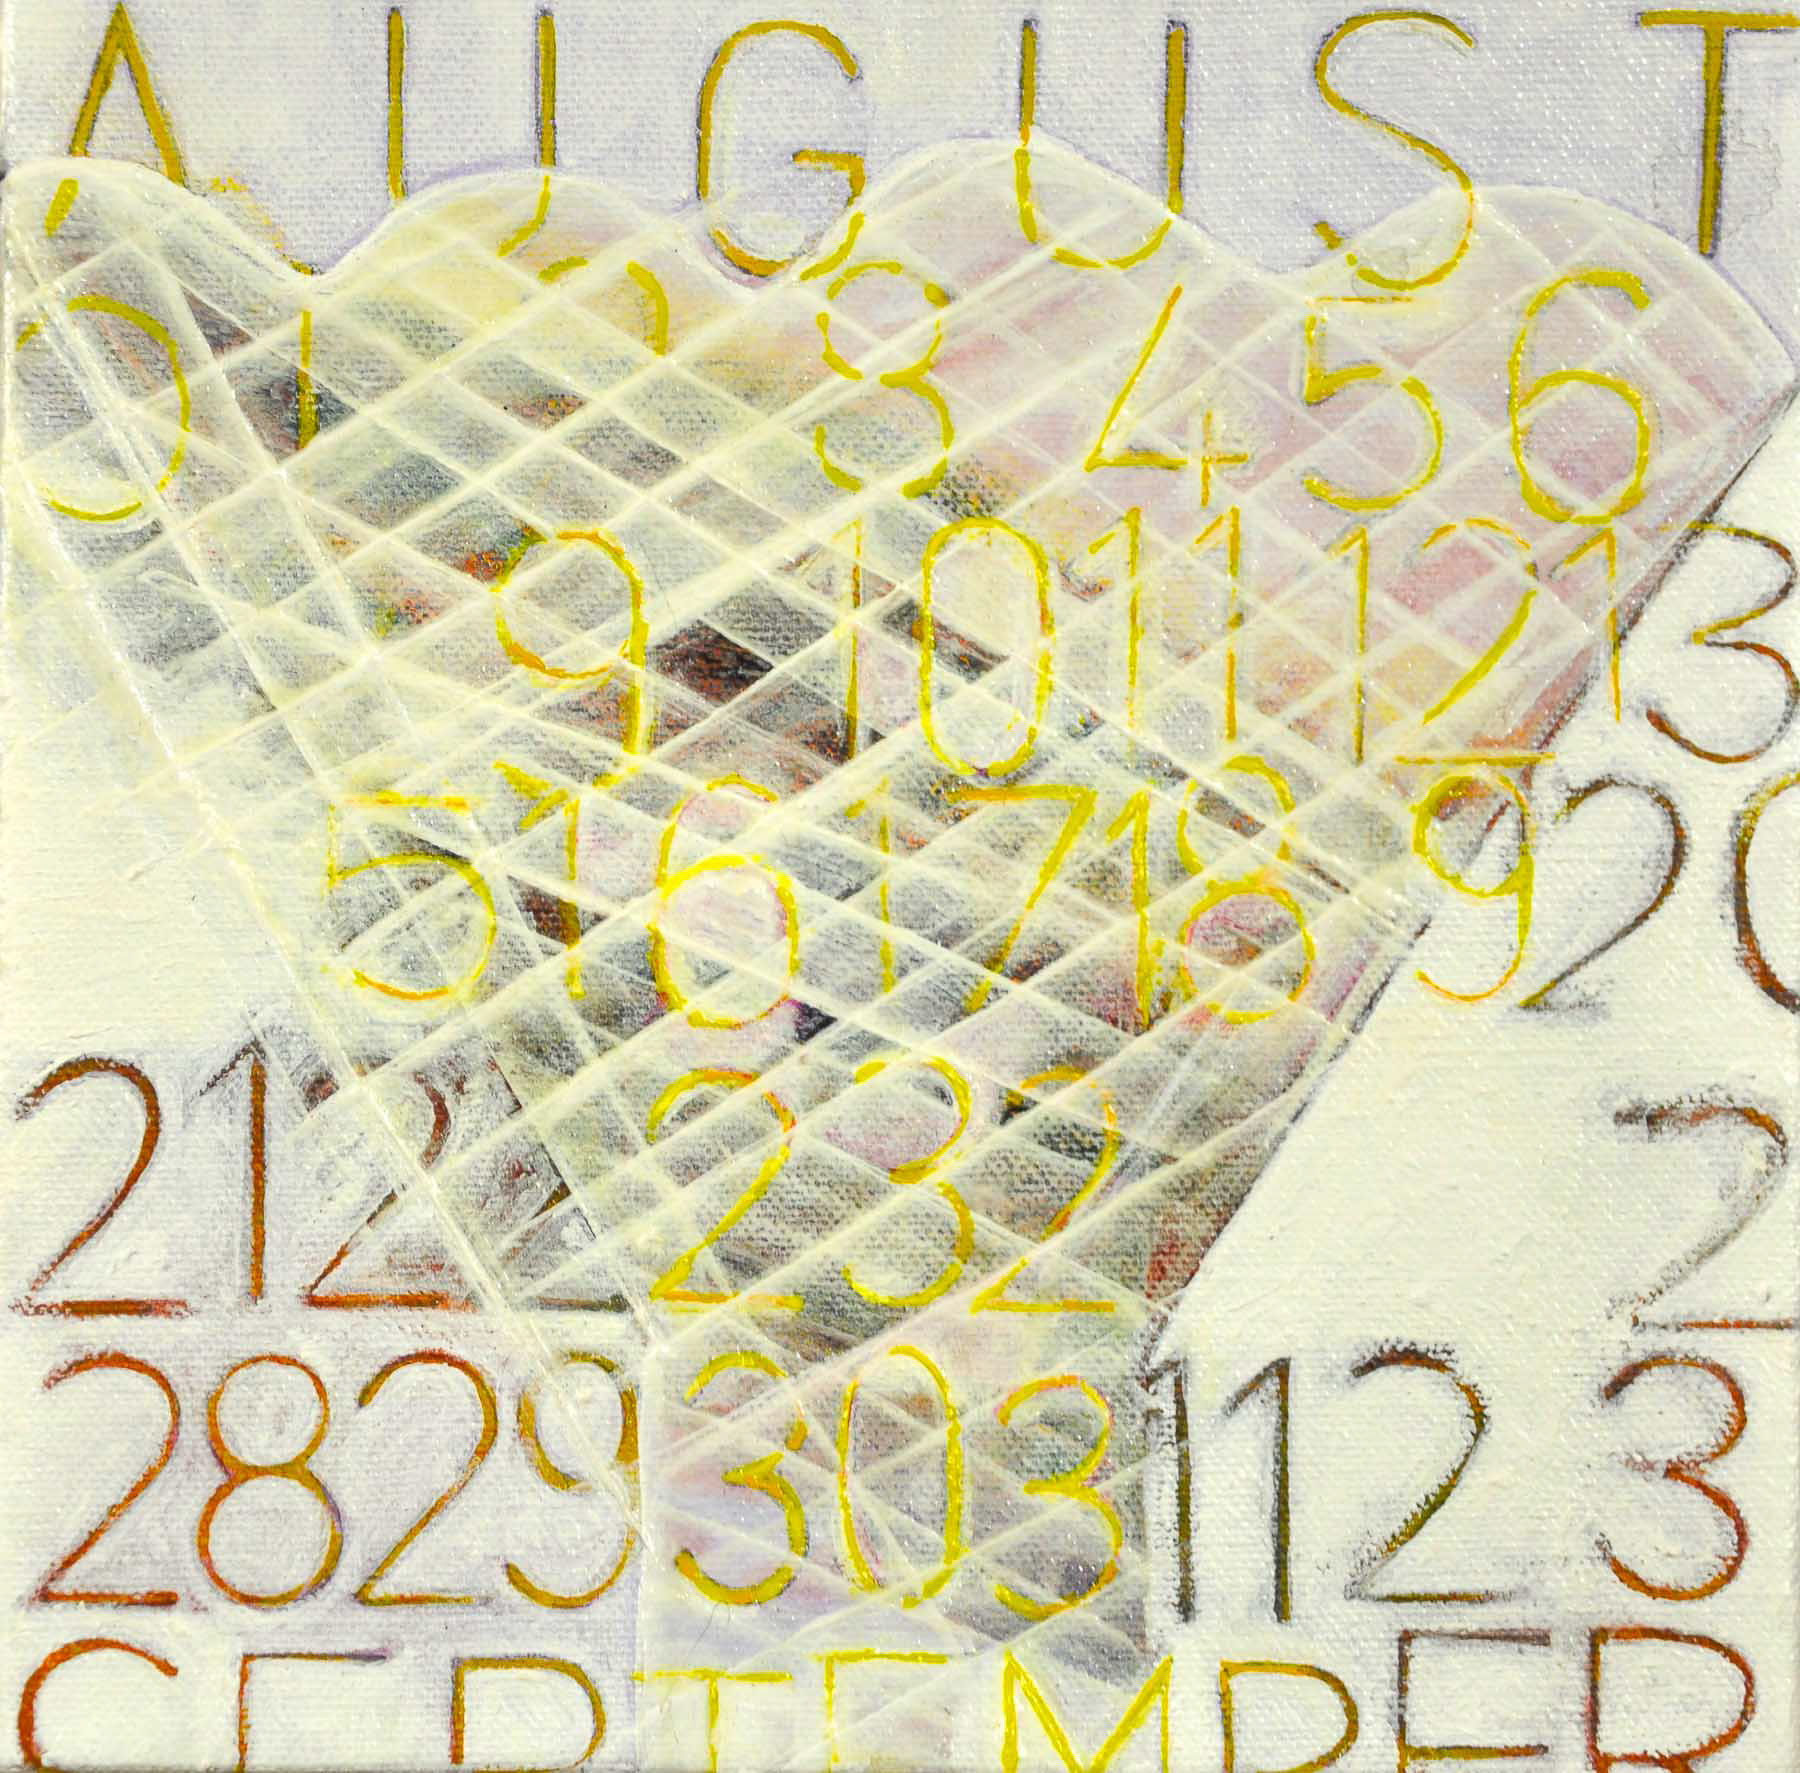 AUGUST
01 2 3 4 5 6
9 10 11 12 13
5 16 17 18 9 20
21 22 23 2 2
28 29 30 31 1 2 3
SEPTEMBER